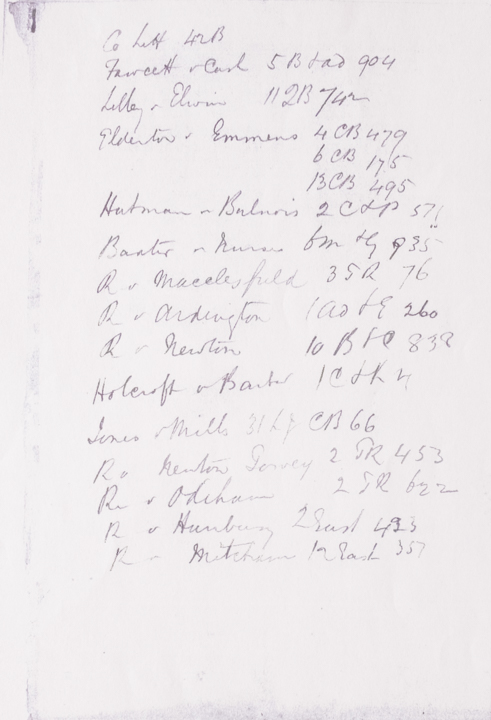 Co Litt 42B
Fawcett v Cash 5 B & ad 904
Lilley v Elwin 11 QB 742
Elderton v Emmens 4 CB 479
6 CB 175
13 CB 495
Huttman v Bulnois 2 C & P 511
Baxter v Nurse 6 M & G 935
R v Macclesfield 3 TR 76
R v Ardington 1 ad & E 260
R v Newton 10 B & C 838
Holcroft v Barber 1 C & K 4
Jones v Mills 31 LJ CB 66
R v Newton Tovey 2 TR 453
R v Odiham 2 TR 622
R v Hanbury 2 East 423
R v Mitcham 12 East 351